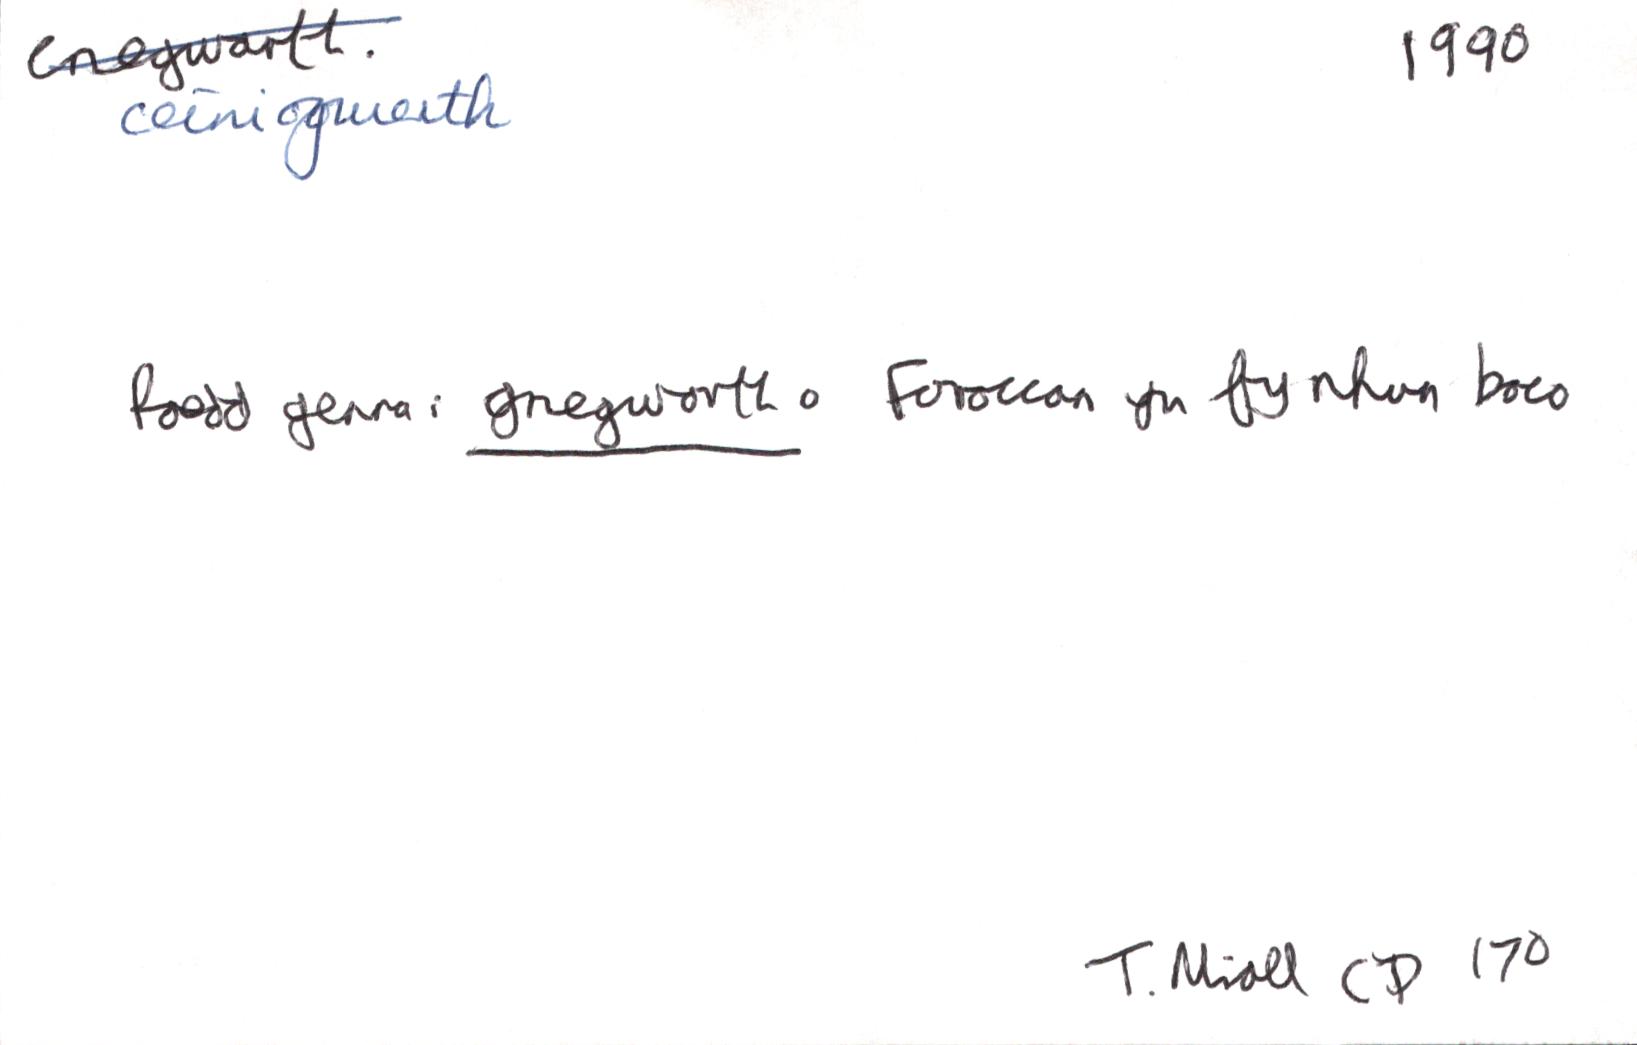 cnegwarth. 1990
ceiniogwerth
Roedd genna i gnegworth o Foroccan yn fy nhun baco
T. Miall CD 170